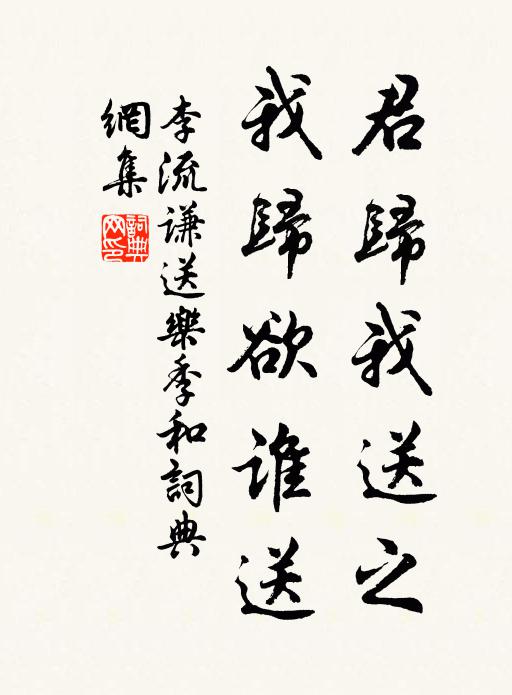 君歸我送之
我歸欲誰送
李流謙送樂季和詞典
網集
詞典
网印